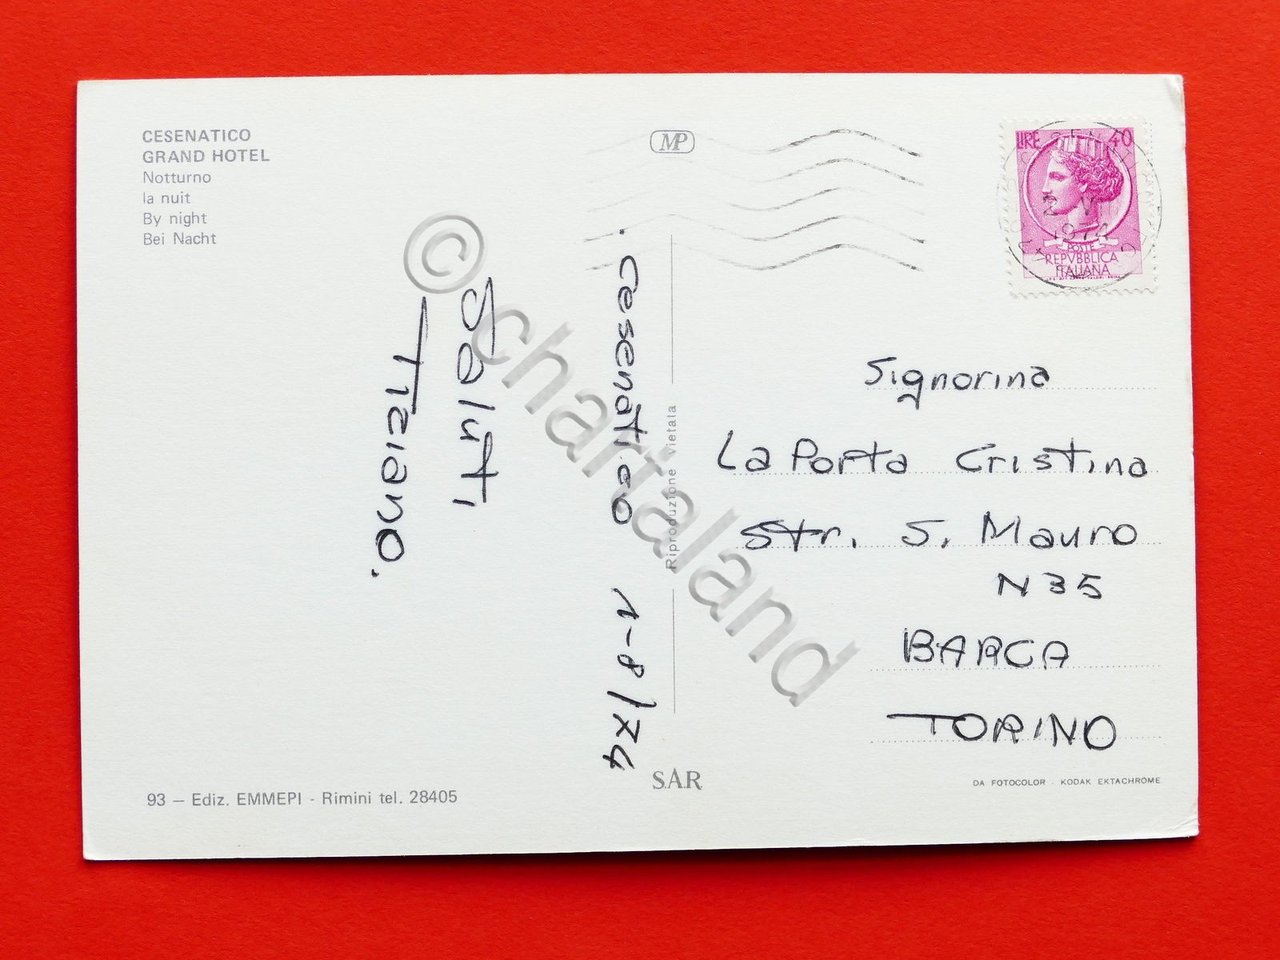 CESENATICO
GRAND HOTEL
Notturno
la nuit
By night
Bei Nacht
MP
LIRE 40
POSTE
REPVBBLICA
ITALIANA
1974
. Cesenatico 1-8/74
Saluti
Tiziano.
Riproduzione vietata
Signorina
La Porta Cristina
Str. S. Mauro
N 35
BARCA
TORINO
SAR
DA FOTOCOLOR - KODAK EKTACHROME
93 — Ediz. EMMEPI - Rimini tel. 28405
© chartaland